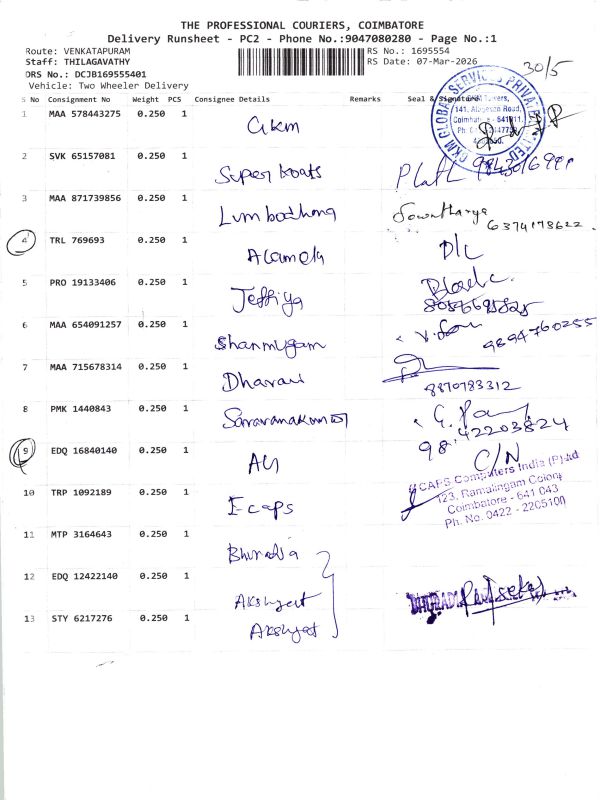 THE PROFESSIONAL COURIERS, COIMBATORE
Delivery Runsheet - PC2 - Phone No.:9047080280 - Page No.:1
Route: VENKATAPURAM
Staff: THILAGAVATHY
DRS No.: DCJB169555401
Vehicle: Two Wheeler Delivery
RS No.: 1695554
RS Date: 07-Mar-2026
30/5
S No Consignment No Weight PCS Consignee Details Remarks Seal & Signature
GKM GLOBAL SERVICES PRIVATE LIMITED
1 MAA 578443275 0.250 1 GKM
2 SVK 65157081 0.250 1 Super
3 MAA 871739856 0.250 1
Sowntharya
6374178622
4 TRL 769693 0.250 1 Alamelu D/C
5 PRO 19133406 0.250 1 Jeffiya
6 MAA 654091257 0.250 1 Shanmugam
9894760255
7 MAA 715678314 0.250 1 Dharani
8870783312
8 PMK 1440843 0.250 1 Saravanakumar
98 42203824
9 EDQ 16840140 0.250 1 C/N
10 TRP 1092189 0.250 1 E caps
CAPS Computers India (P) Ltd
123, Ramalingam Colony
Coimbatore - 641 043
Ph. No. 0422 - 2205100
11 MTP 3164643 0.250 1
12 EDQ 12422140 0.250 1 Akshyat
13 STY 6217276 0.250 1 Akshyat